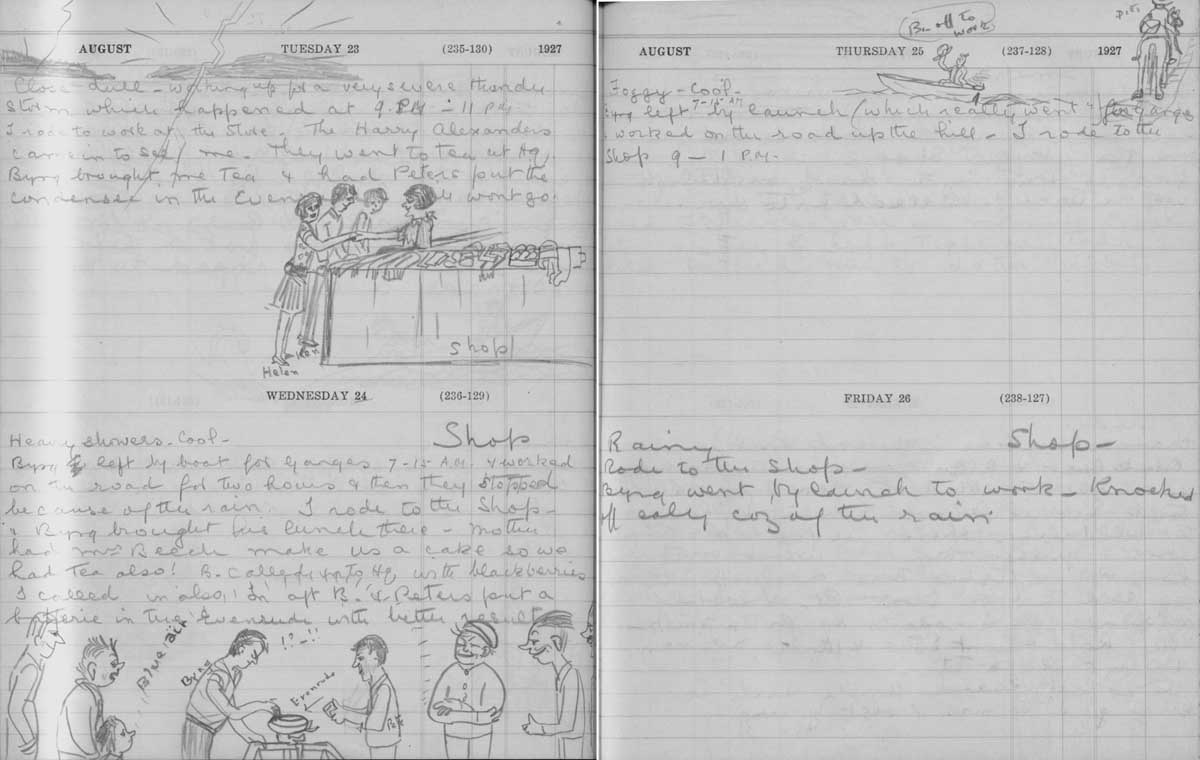 AUGUST TUESDAY 23 (235-130) 1927
Close - dull - working up for a very severe thunder
storm which happened at 9 P.M - 11 P.M
I rode to work at the Store. The Harry Alexanders
came in to see me. They went to tea at Hq
Byng brought me Tea & had Peters put the
condenser in the Even wont go.
Helen
Shop
WEDNESDAY 24 (236-129)
Heavy showers - Cool - Shop
Byng left by boat for Ganges 7-15 A.M. & worked
on the road for two hours & then they stopped
because of the rain. I rode to the Shop -
Byng brought his lunch there - Mother
had Mrs Beech make us a cake so we
had Tea also! B. called Hq with blackberries
I called in also! In aft B. & Peters put a
batterie in the Evenrude with better result
Blue air
Byng
!? - !!
Evenrude
Pete
AUGUST THURSDAY 25 (237-128) 1927
B. off to work
Foggy - Cool.
left 7-15 by launch (which really went!) for Ganges
worked on the road up the hill - I rode to the
Shop 9 - 1 P.M.
FRIDAY 26 (238-127)
Rainy Shop -
Rode to the Shop -
Byng went by launch to work - Knocked
off early coz of the rain.